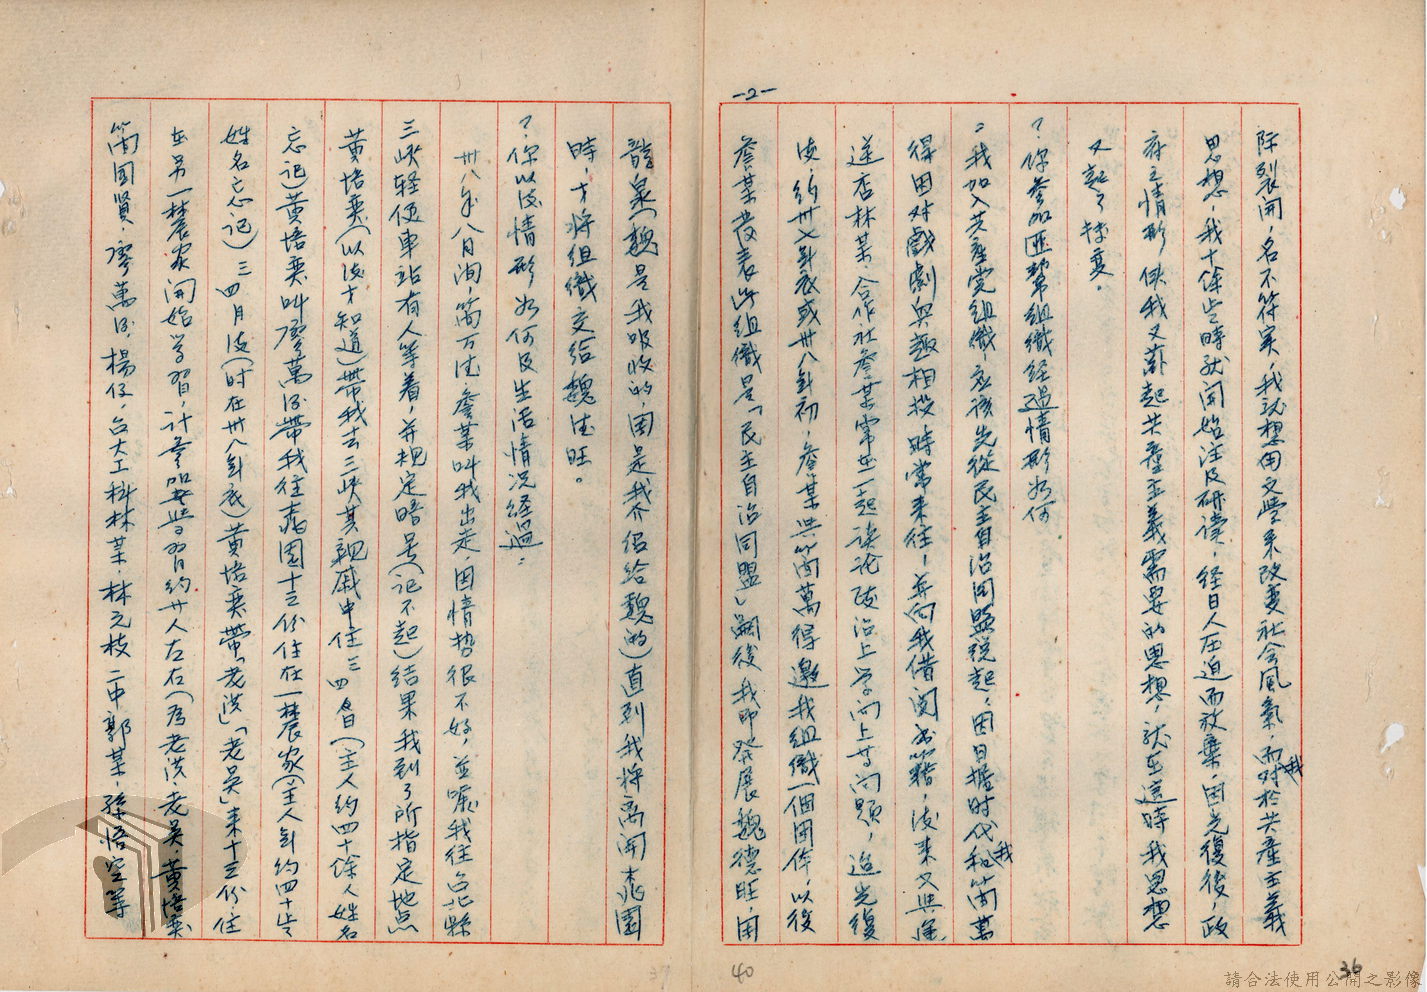 -2-
際裂開，名不符实，我就想用文学來改变社会風氣，而我对於共產主義
思想，我十余岁時就開始注及研读，经日人压迫而放棄，因光復後，政
府之情形使我又燕起共產主義需要的思想，就在這時我思想
又起了轉变。
？你参加匪幫組織经過情形如何
：我加入共產党組織，应该先從民主自治同盟說起，因日据时代我和簡萬
得因对戲劇興趣相投時常來往，并向我借閱书籍，後來又與
逆店林某，合作社詹某常在一起谈论政治上学问上等问题，迨光復
後，約卅七年底或卅八年初，詹某與簡萬得邀我組織一個団体，以後
詹某发表此組織是「民主自治同盟」嗣後我即發展魏德旺，困
龍泉（魏是我吸收的，困是我介绍给魏的）直到我将离開桃園
時，才将組織交给魏德旺。
？你以後情形如何及生活情况经過：
卅八年八月洵，简万得詹某叫我出走因情势很不好，並嘱我往台北縣
三峽轻便車站有人等着，并規定暗号（记不起）结果我到了所指定地点
黄培奕（以後才知道）带我去三峡其親戚中住三四日（主人約四十余人姓名
忘记）黄培奕叫廖萬得带我往桃園十三份住在一農家（主人年約四十岁
姓名忘记）三四月後（时在卅八年底）黄培奕带「老洪」「老吳」来十三份住
在另一農家開始学習，计参加学習約廿人左右（为老洪老吳黄培奕
简国賢，廖萬得，楊仔，台大工科林某，林元枝二中郭某，孫悟空等
40
36
請合法使用公開之影像